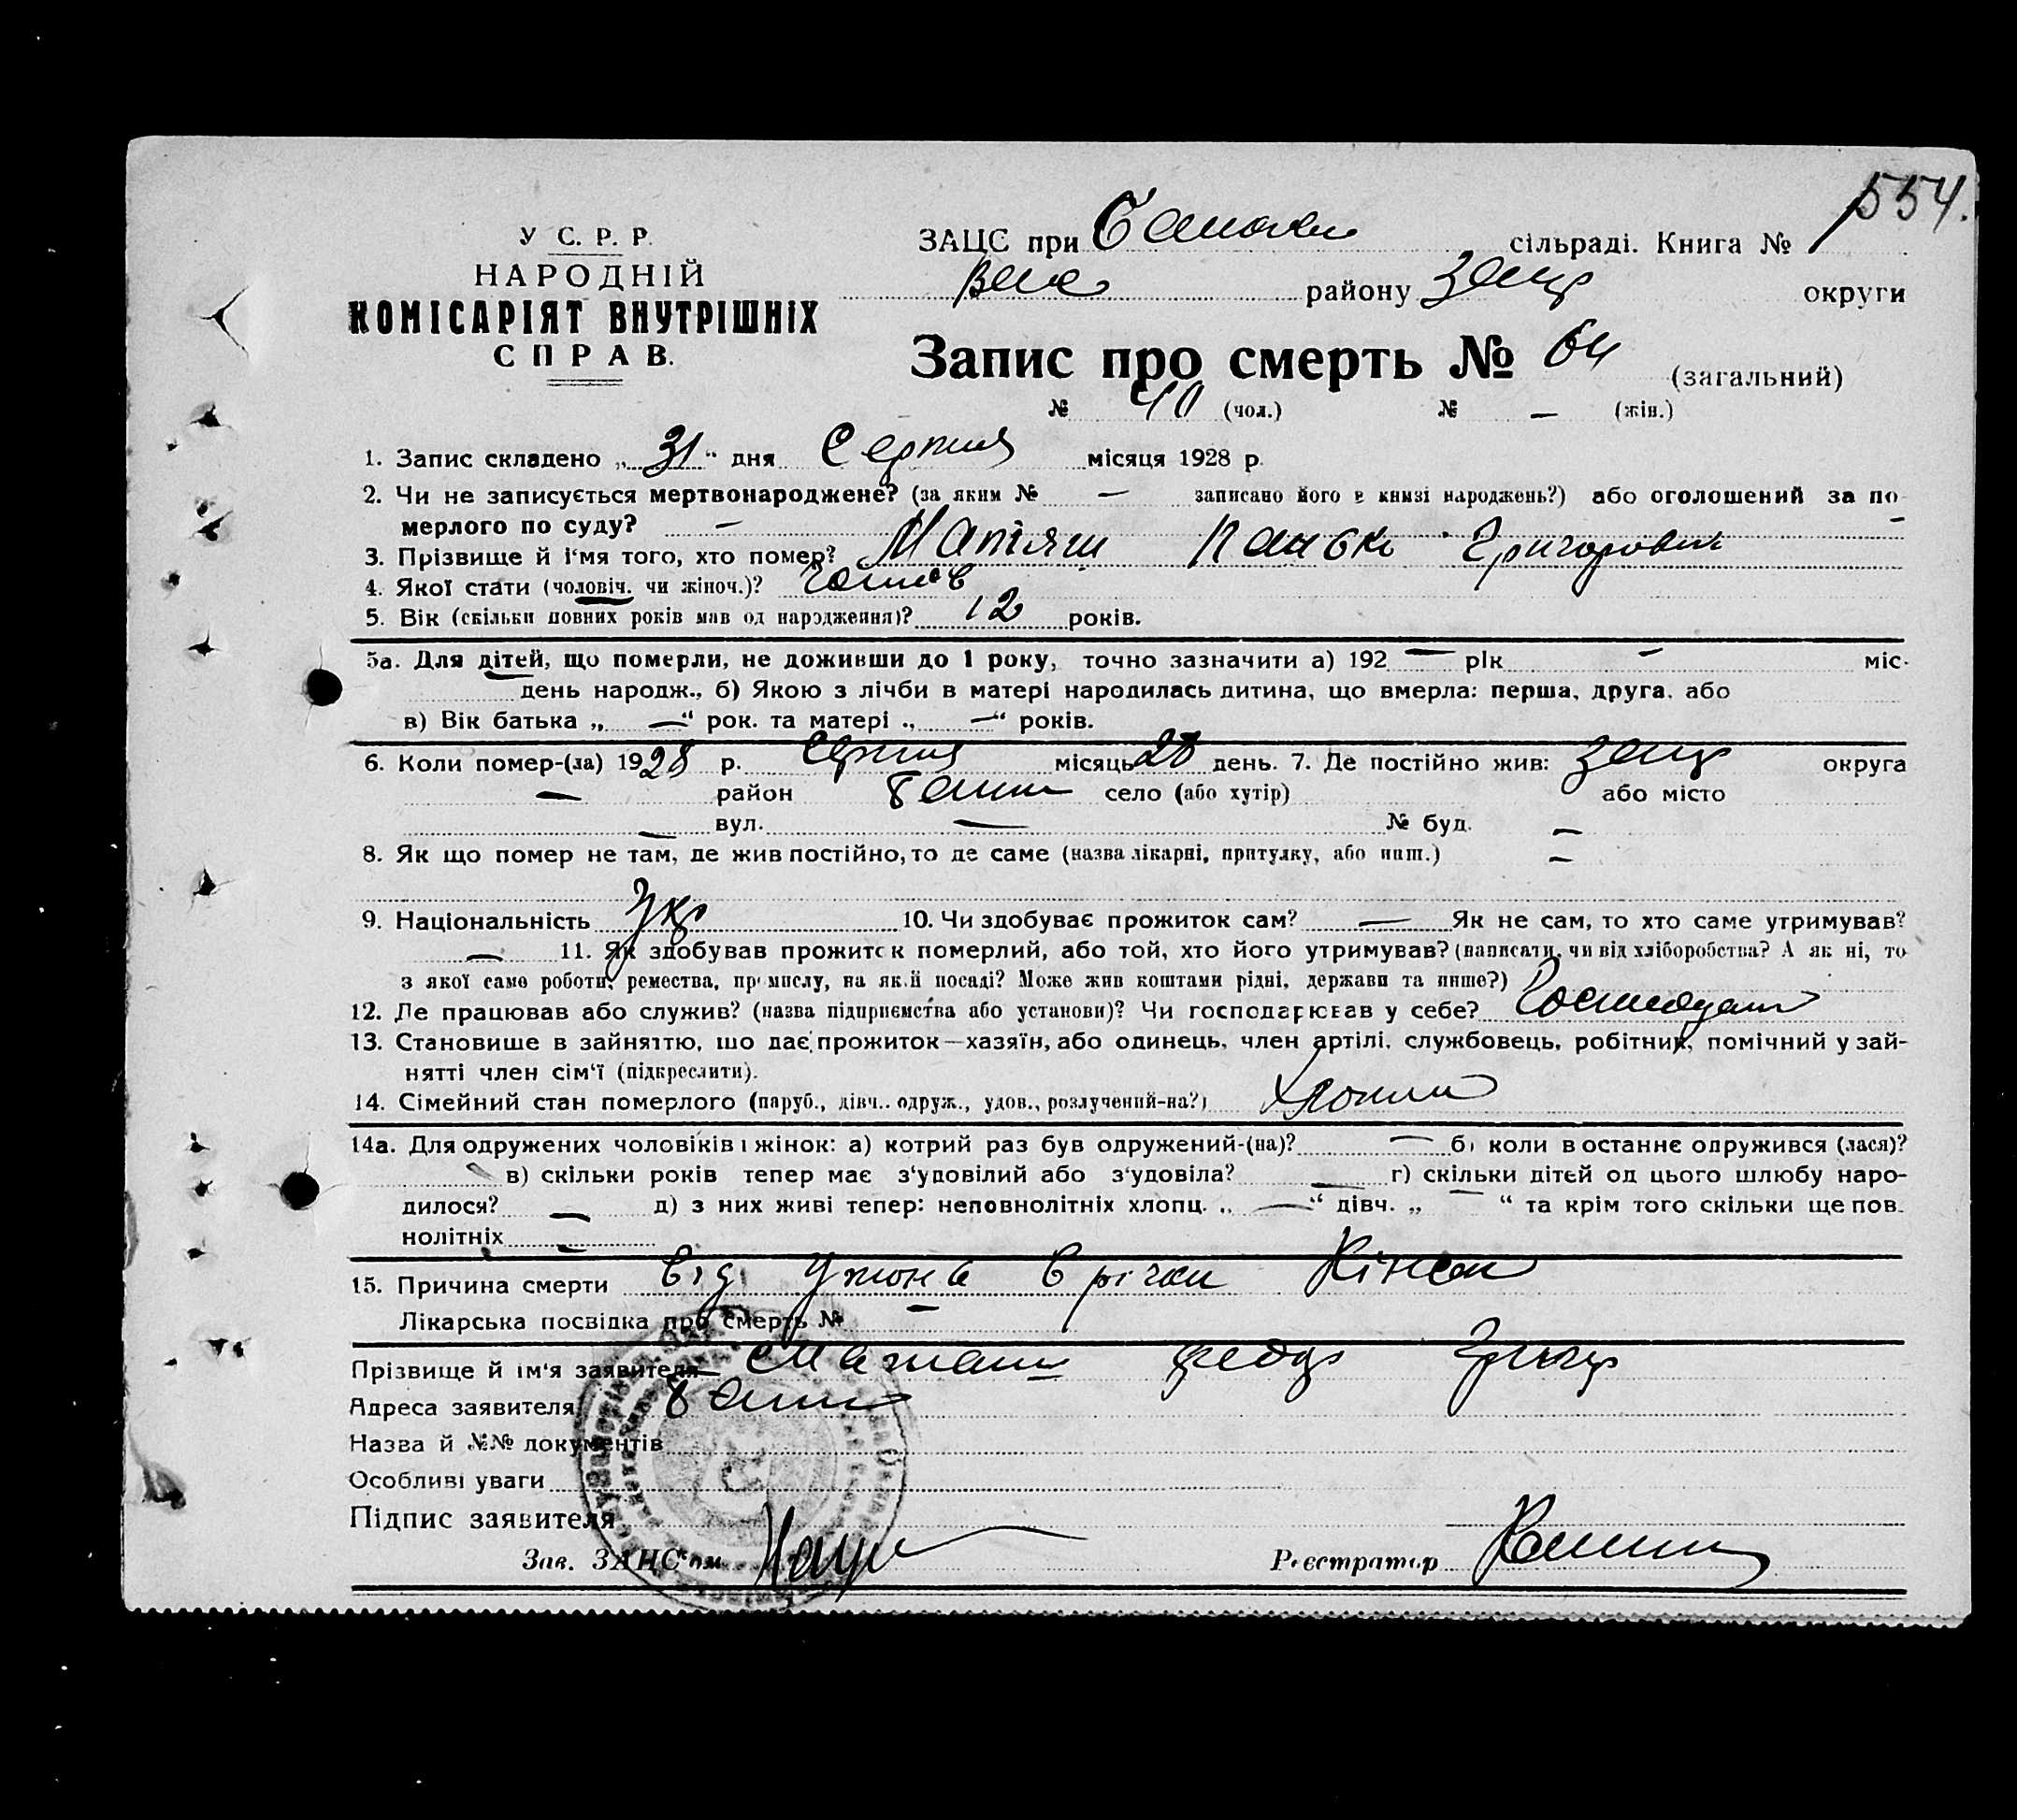 554.
У С. Р. Р.
НАРОДНІЙ
КОМІСАРІЯТ ВНУТРІШНІХ
СПРАВ.
ЗАЦС при сільраді. Книга № 1
району Запор округи
Запис про смерть № 64 (загальний)
№ 40 (чол.) № — (жін.)
1. Запис складено „31“ дня Серпня місяця 1928 р.
2. Чи не записується мертвонароджене? (за яким № — записано його в книзі народжень?) або оголошений за по-
мерлого по суду? — —
3. Прізвище й ім'я того, хто помер? Матяш Панько Григорович
4. Якої стати (чоловіч. чи жіноч.)? чолов
5. Вік (скільки повних років мав од народження)? 12 років.
5а. Для дітей, що померли, не доживши до 1 року, точно зазначити а) 192 — рік — міс.
день народж., б) Якою з лічби в матері народилась дитина, що вмерла: перша, друга, або
в) Вік батька „—“ рок. та матері „—“ років.
6. Коли помер-(ла) 1928 р. серпня місяць 28 день. 7. Де постійно жив: Запор округа
— район село (або хутір) або місто
— вул. — № буд. —
8. Як що помер не там, де жив постійно, то де саме (назва лікарні, притулку, або инш.) —
9. Національність Укр 10. Чи здобував прожиток сам? — Як не сам, то хто саме утримував?
— 11. Як здобував прожиток померлий, або той, хто його утримував? (написати, чи від хліборобства? А як ні, то
з якої саме роботи, ремества, промислу, на якій посаді? Може жив коштами рідні, держави та инше?)
12. Де працював або служив? (назва підприємства або установи)? Чи господарював у себе?
13. Становище в зайняттю, що дає прожиток—хазяїн, або одинець, член артілі, службовець, робітник, помічний у зай-
нятті член сім'ї (підкреслити).
14. Сімейний стан померлого (паруб., дівч., одруж., удов., розлучений-на?)
14а. Для одружених чоловіків і жінок: а) котрий раз був одружений-(на)? — б) коли в останнє одружився (лася)?
в) скільки років тепер має з'удовілий або з'удовіла? — г) скільки дітей од цього шлюбу наро-
дилося? — д) з них живі тепер: неповнолітніх хлопц. „—“ дівч. „—“ та крім того скільки ще пов-
нолітніх —
15. Причина смерти від утону в річки Кінськ
Лікарська посвідка про смерть № —
Прізвище й ім'я заявителя Матяш Федор Григор
Адреса заявителя
Назва й №№ документів
Особливі уваги
Підпис заявителя
Зав. ЗАЦС'ом Реєстратор